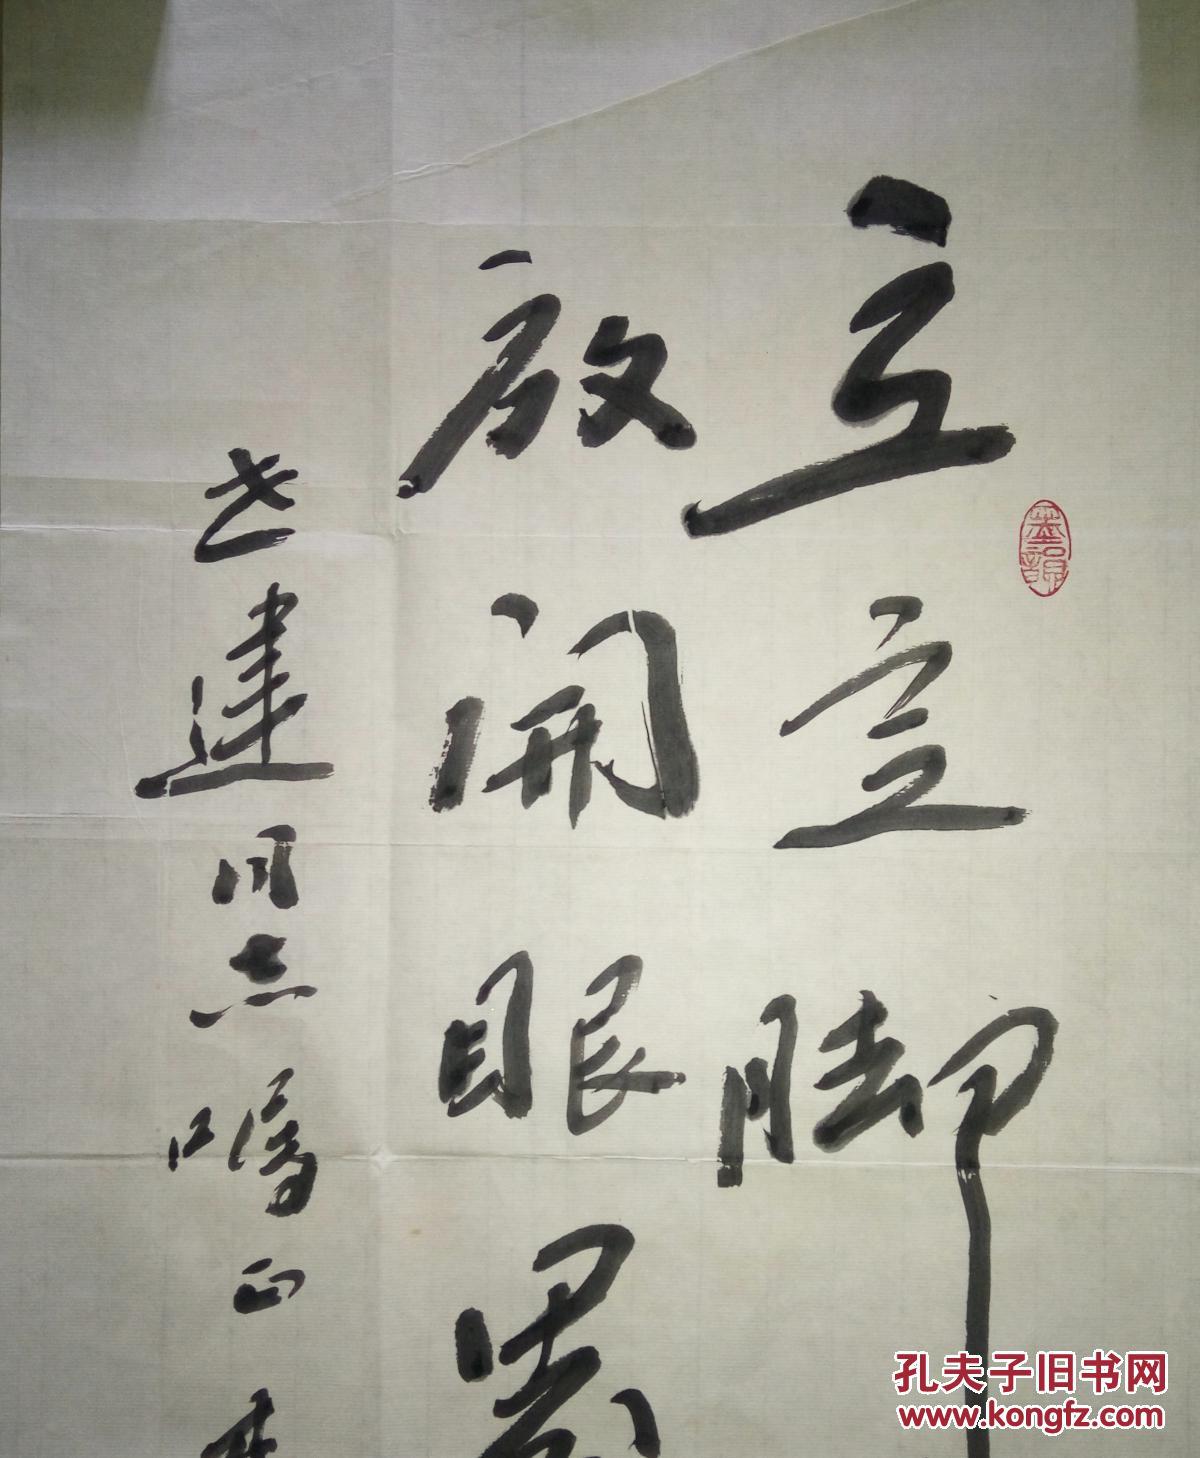 立定脚
放开眼
世建同志嘱正
墨韻
孔夫子旧书网
www.kongfz.com